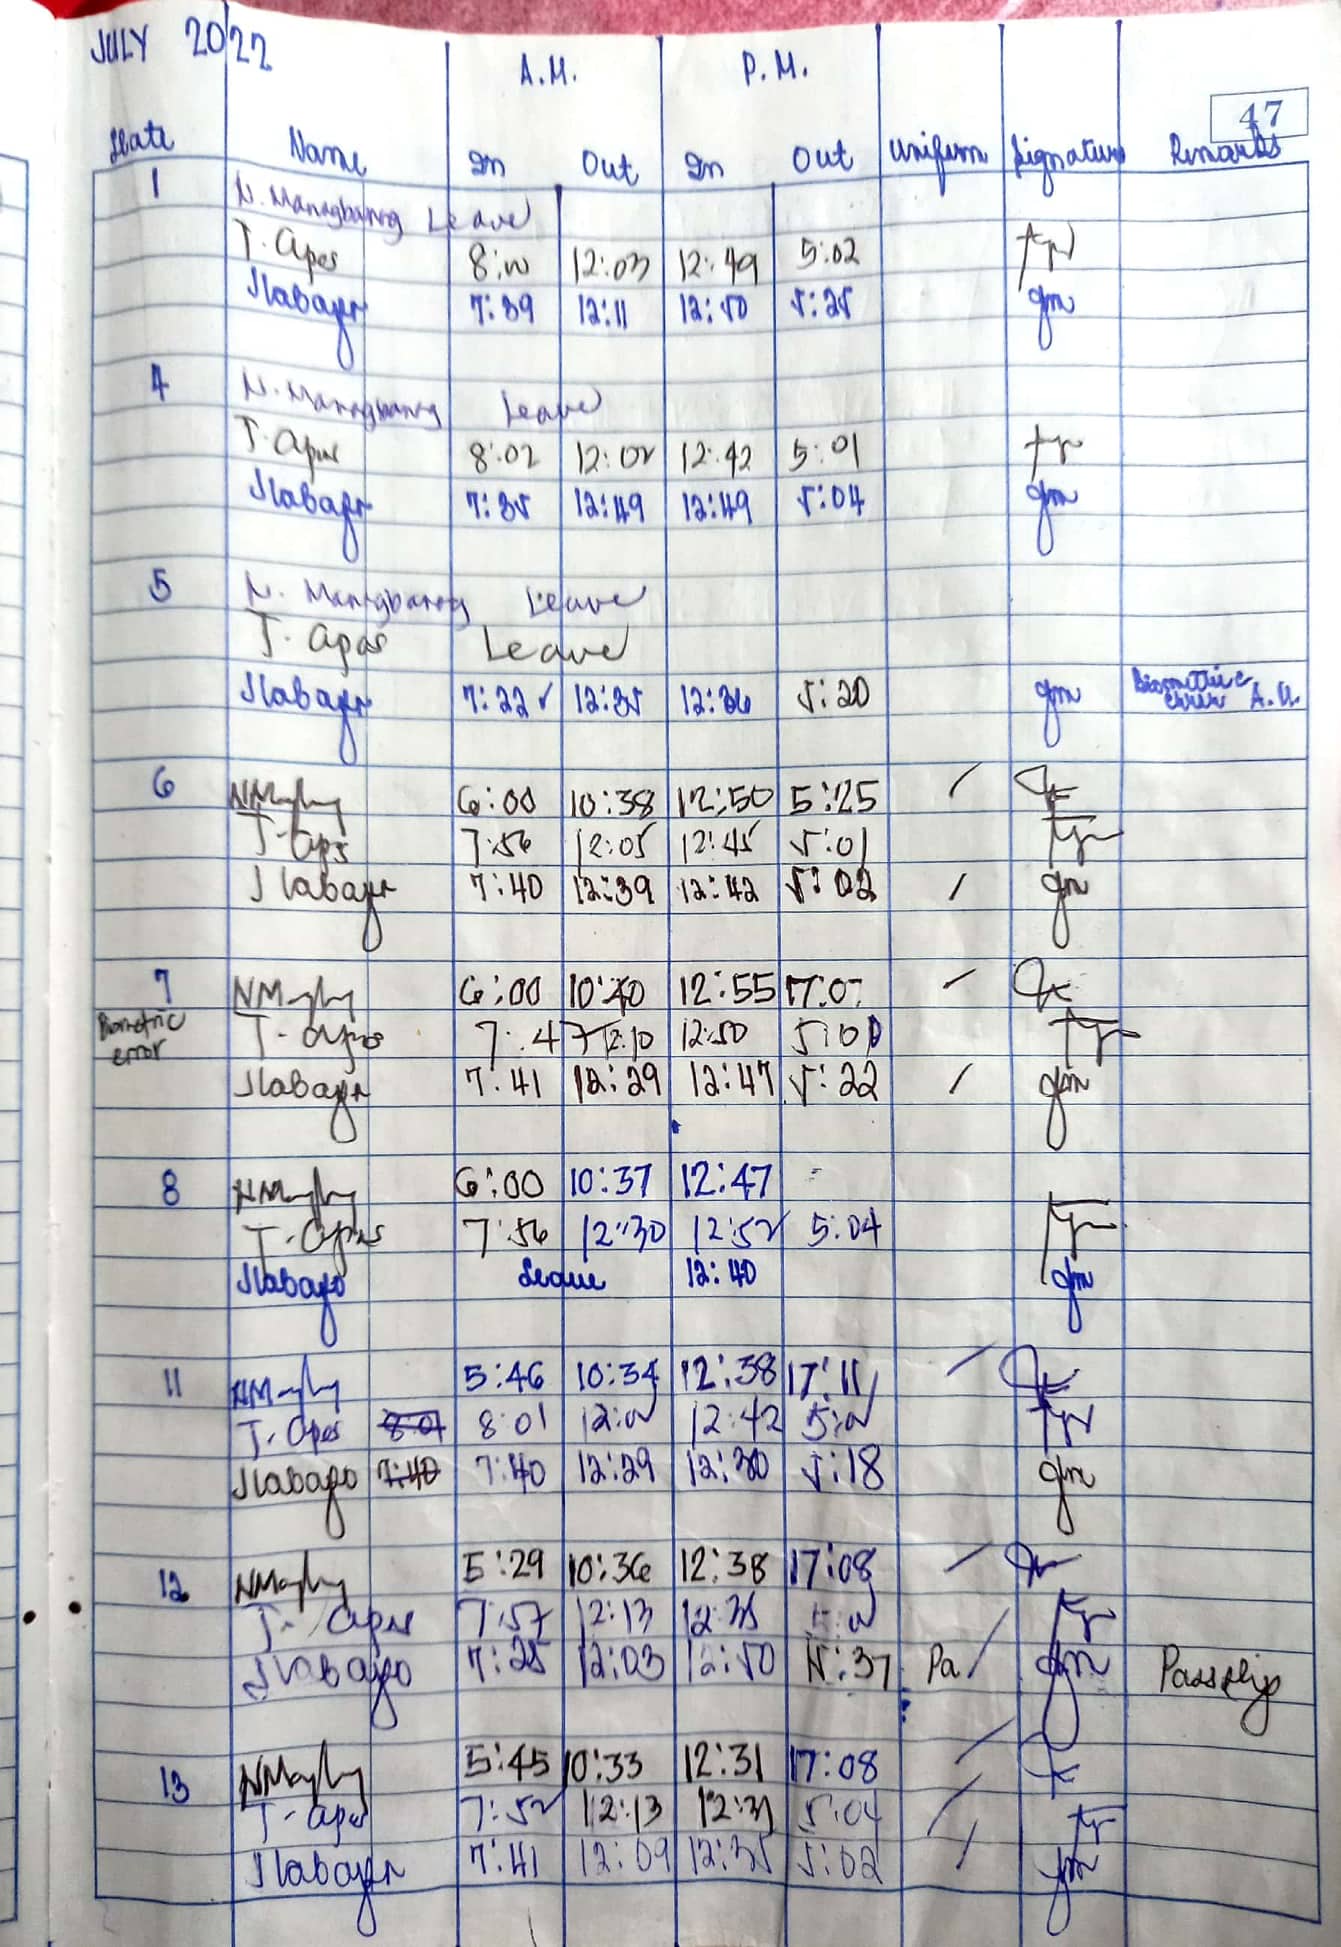 JULY 2022
A.M. P.M.
47
Date Name In Out In Out Uniform Signature Remarks
1 N. Managbanag Leave
T. Apas 8:00 12:03 12:49 5:02
Jlabayo 7:39 12:11 12:50 5:25
4 N. Managbanag Leave
T. Apas 8:02 12:02 12:42 5:01
Jlabayo 7:35 12:49 12:49 5:04
5 N. Managbanag Leave
T. Apas Leave
Jlabayo 7:22 ✓ 12:35 12:36 5:20 Biometric
error A.M.
6 6:00 10:38 12:50 5:25 /
T. Apas 7:56 12:05 12:45 5:01
Jlabayo 7:40 12:39 12:42 5:02 /
7 6:00 10:40 12:55 17:07 /
Biometric
error
T. Apas 7:47 12:10 12:50 5:00
Jlabayo 7:41 12:29 12:47 5:22 /
8 6:00 10:37 12:47
T. Apas 7:56 12:30 12:52 5:04
Jlabayo Leave 12:40
11 5:46 10:34 12:38 17:11 /
T. Apas 8:01 8:01 12:00 12:42 5:00
Jlabayo 7:40 7:40 12:29 12:30 5:18
12 5:29 10:36 12:38 17:08 /
T. Apas 7:57 12:13 12:35 /
Jlabayo 7:25 12:03 12:50 5:37 Pa / Passslip
13 5:45 10:33 12:31 17:08 /
T. Apas 7:52 12:13 12:31 5:04 /
Jlabayo 7:41 12:09 12:35 5:02 /